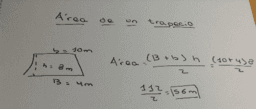 Área de un trapecio
b = 10m
h = 8m
B = 4m
Área = (B + b) h / 2 = (10+4) 8 / 2
112 / 2 = 56m